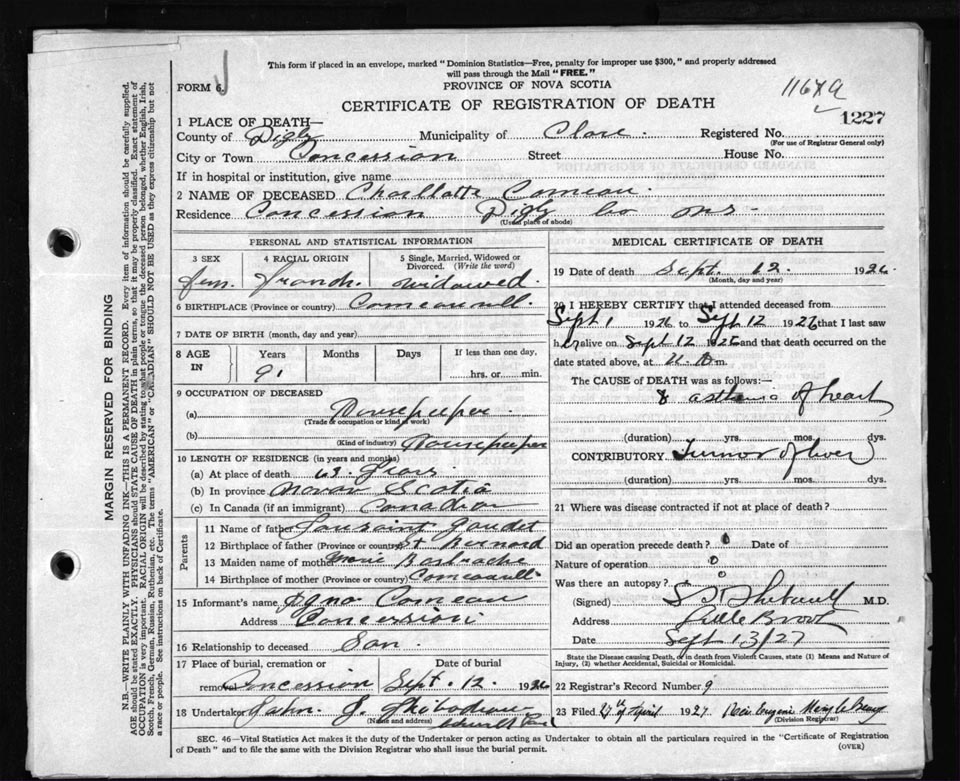 This form if placed in an envelope, marked "Dominion Statistics—Free, penalty for improper use $300," and properly addressed
will pass through the Mail "FREE."
FORM 6.
PROVINCE OF NOVA SCOTIA
CERTIFICATE OF REGISTRATION OF DEATH
1227
1 PLACE OF DEATH—
County of Digby Municipality of Clare. Registered No.
(For use of Registrar General only)
City or Town Concession Street House No.
If in hospital or institution, give name
2 NAME OF DECEASED Charllotte Comeau.
Residence Concession Digby Co
(Usual place of abode)
PERSONAL AND STATISTICAL INFORMATION
3 SEX 4 RACIAL ORIGIN 5 Single, Married, Widowed or Divorced. (Write the word)
Fem. French. Widowed
6 BIRTHPLACE (Province or country)
7 DATE OF BIRTH (month, day and year)
8 AGE IN Years Months Days If less than one day,
91 hrs. or min.
9 OCCUPATION OF DECEASED
(a) Housekeeper
(Trade or occupation or kind of work)
(b) Housekeeper
(Kind of industry)
10 LENGTH OF RESIDENCE (in years and months)
(a) At place of death 63 years
(b) In province Novav Scotia
(c) In Canada (if an immigrant)
Parents
11 Name of father Gaudet
12 Birthplace of father (Province or country) St Bernard
13 Maiden name of mother
14 Birthplace of mother (Province or country)
15 Informant's name Comeau
Address Concession
16 Relationship to deceased Son.
17 Place of burial, cremation or removal Concession
Date of burial Sept. 12. 1926
18 Undertaker John. J. Thibodeau
(Name and address)
MEDICAL CERTIFICATE OF DEATH
19 Date of death Sept. 12. 1926.
(Month, day and year)
20 I HEREBY CERTIFY that I attended deceased from
Sept 1 1926 to Sept 12 1926 that I last saw
her alive on Sept 12 1926 and that death occurred on the
date stated above, at m.
The CAUSE OF DEATH was as follows:—
asthenia of heart
(duration) yrs. mos. dys.
CONTRIBUTORY Tumor of liver
(duration) yrs. mos. dys.
21 Where was disease contracted if not at place of death?
Did an operation precede death? 0 Date of
Nature of operation 0
Was there an autopsy? 0
(Signed) M.D.
Address Little Brook
Date Sept 13/27
State the Disease causing Death, or in death from Violent Causes, state (1) Means and Nature of
Injury, (2) whether Accidental, Suicidal or Homicidal.
22 Registrar's Record Number 9
23 Filed of April 1927.
(Division Registrar)
SEC. 46—Vital Statistics Act makes it the duty of the Undertaker or person acting as Undertaker to obtain all the particulars required in the "Certificate of Registration
of Death" and to file the same with the Division Registrar who shall issue the burial permit.
(OVER)
MARGIN RESERVED FOR BINDING
N.B.—WRITE PLAINLY WITH UNFADING INK—THIS IS A PERMANENT RECORD. Every item of information should be carefully supplied.
AGE should be stated EXACTLY. PHYSICIANS should STATE CAUSE OF DEATH in plain terms, so that it may be properly classified. Exact statement of
OCCUPATION is very important. RACIAL ORIGIN will be described by stating to what people or tongue the deceased person belonged, whether English, Irish,
Scotch, French, German, Russian, Ruthenian, etc. The terms "AMERICAN" or "CANADIAN" SHOULD NOT BE USED as they express citizenship but not
a race or people. See instructions on back of Certificate.